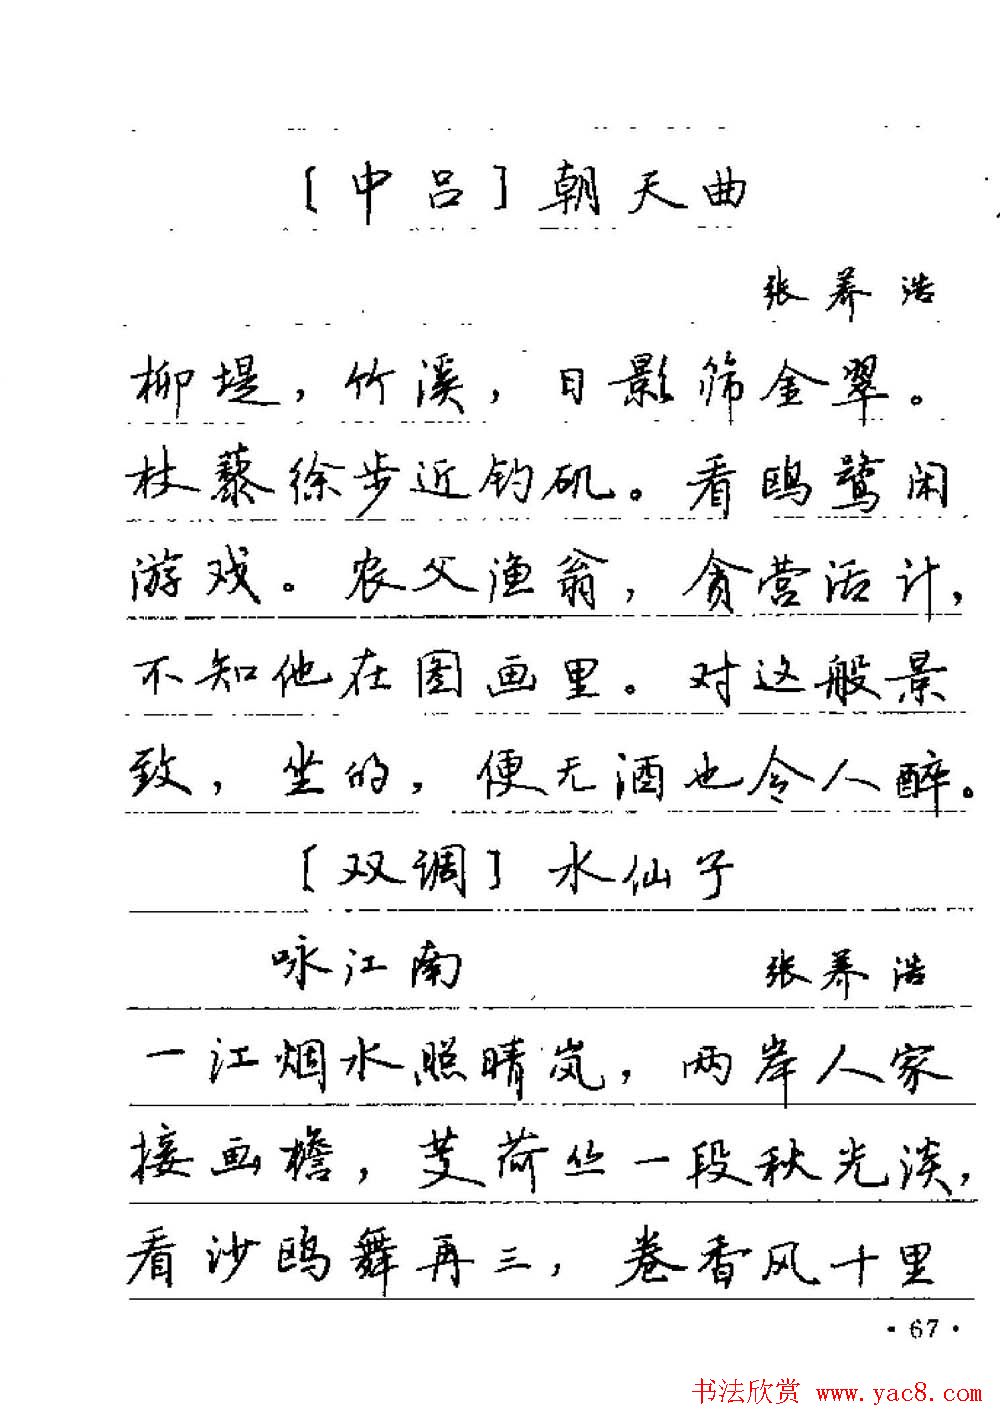 ［中吕］朝天曲
张养浩
柳堤，竹溪，日影筛金翠。
杖藜徐步近钓矶。看鸥鹭闲
游戏。农父渔翁，贪营活计，
不知他在图画里。对这般景
致，坐的，便无酒也令人醉。
［双调］水仙子
咏江南 张养浩
一江烟水照晴岚，两岸人家
接画檐，芰荷丛一段秋光淡，
看沙鸥舞再三，卷香风十里
·67·
书法欣赏 www.yac8.com